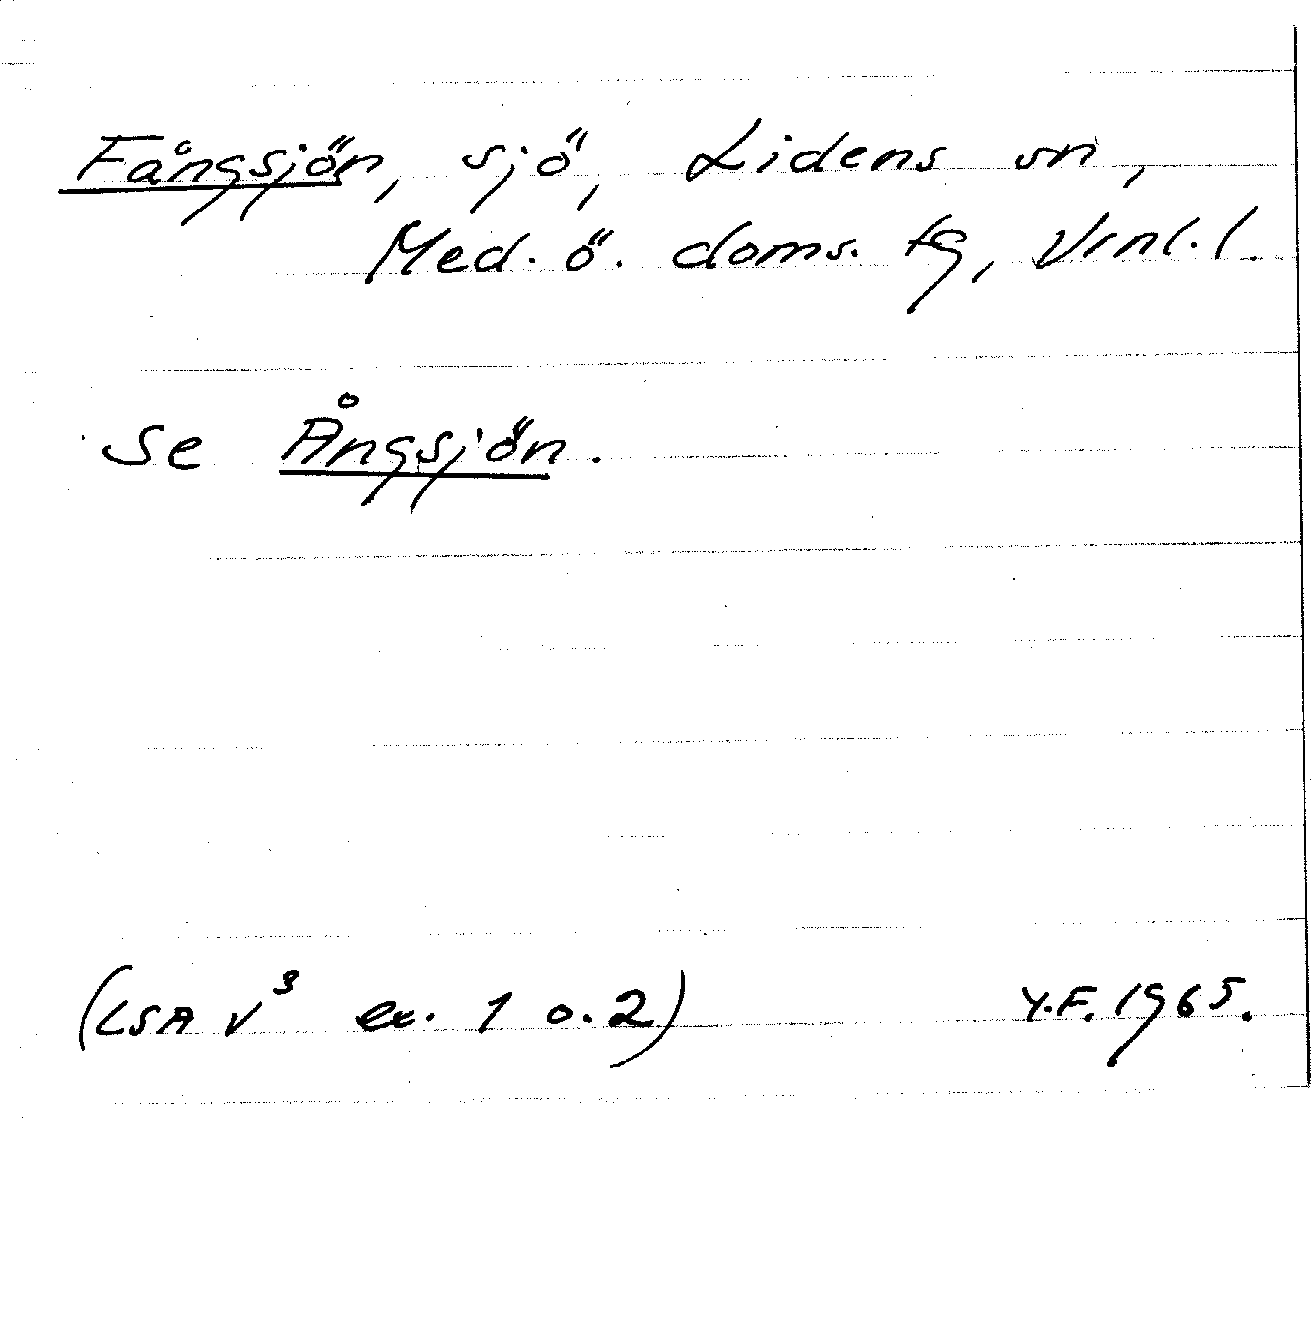 Fångsjön, sjö, Lidens sn,
Med. ö. doms. tg, Vrnl. l.
se Ångsjön.
(LSA V³ ex. 1 o. 2) Y.F. 1965.